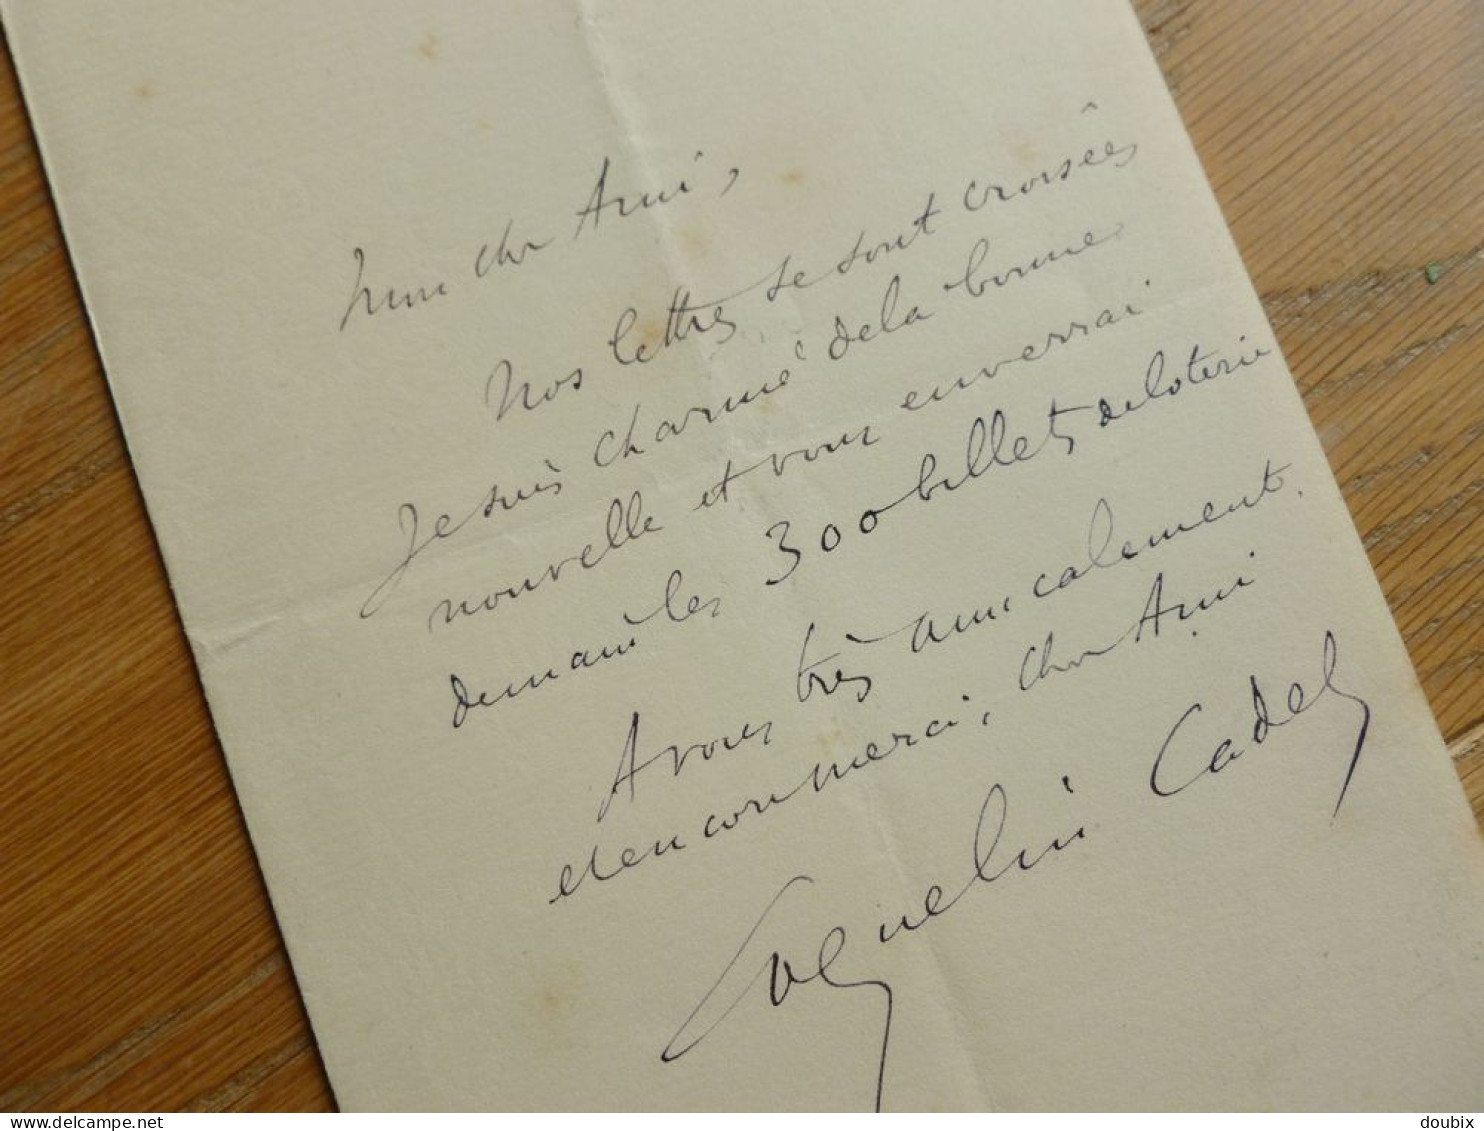 Mon cher Ami,
Nos lettres se sont croisées
Je suis charmé de la bonne
nouvelle et vous enverrai
demain les 300 billets de loterie
A vous très amicalement.
et encore merci, cher Ami
Coquelin Cadet
delcampe.net
doubix